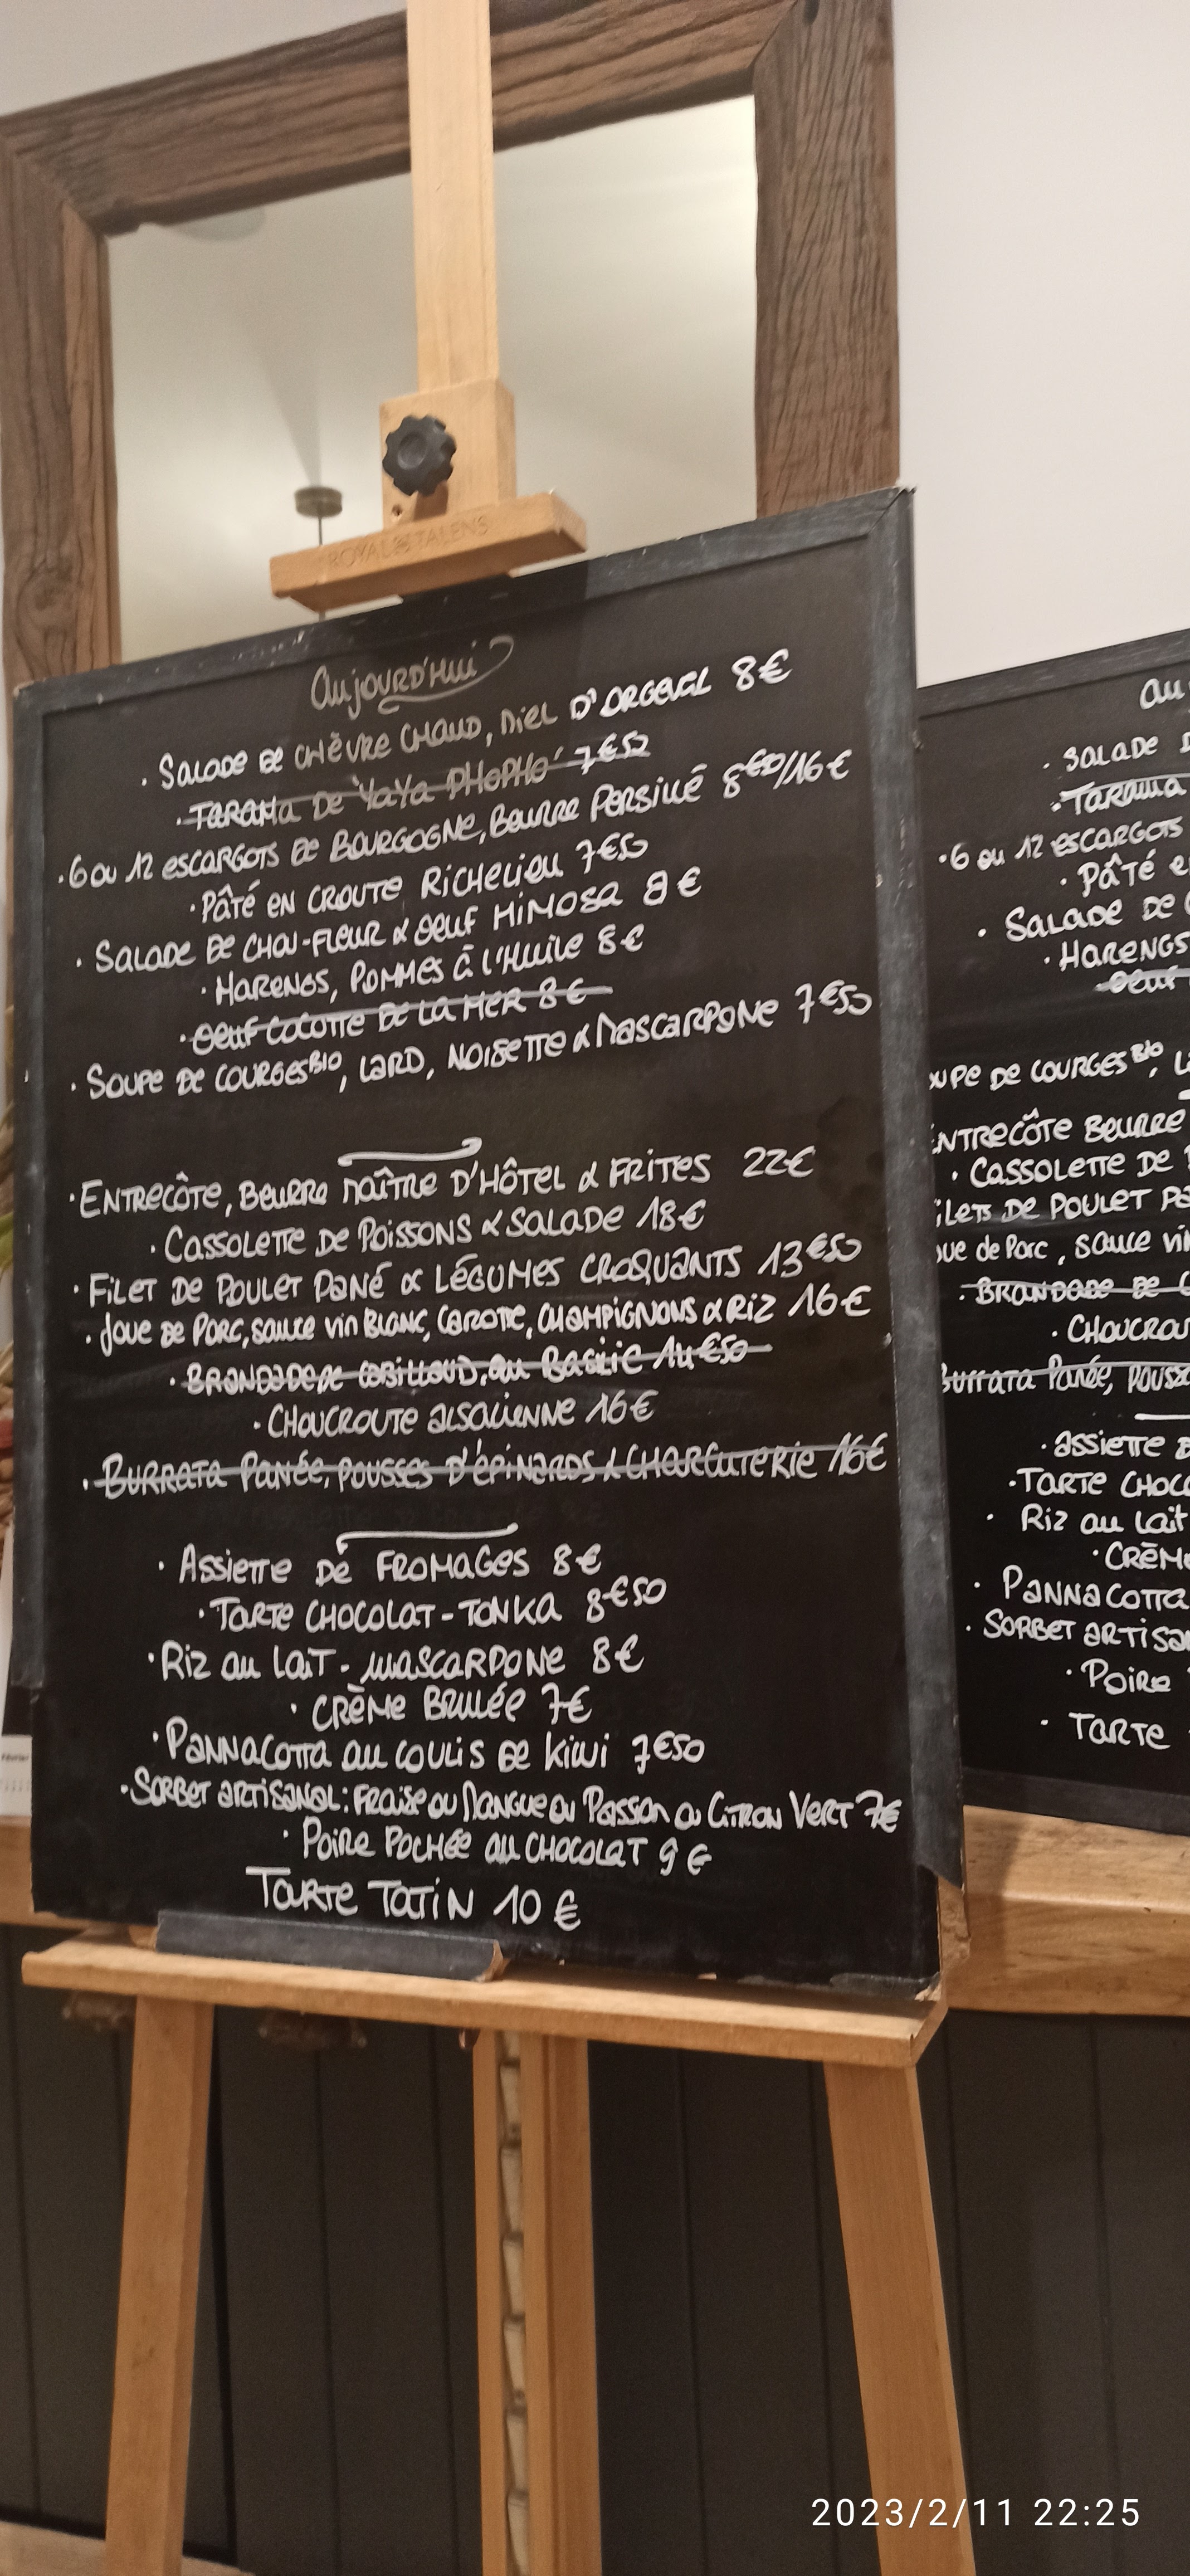 ROYAL TALENS
Aujourd'hui
· Salade de chèvre chaud, miel d'Orgeval 8€
· Tarama de 'Yaya Phopho' 7€50
· 6 ou 12 escargots de Bourgogne, Beurre Persillé 8€50/16€
· Pâté en croute Richelieu 7€50
· Salade de chou-fleur & oeuf mimosa 8€
· Harengs, pommes à l'huile 8€
· Oeuf cocotte de la mer 8€
· Soupe de courges BIO, lard, noisette & mascarpone 7€50
· Entrecôte, Beurre maître d'hôtel & frites 22€
· Cassolette de poissons & salade 18€
· Filet de poulet pané & légumes croquants 13€50
· Joue de porc, sauce vin blanc, carotte, champignons & riz 16€
· Brandade de cabillaud, au basilic 14€50
· Choucroute alsacienne 16€
· Burrata panée, pousses d'épinards & charcuterie 16€
· Assiette de fromages 8€
· Tarte chocolat-tonka 8€50
· Riz au lait - mascarpone 8€
· Crème brulée 7€
· Pannacotta au coulis de kiwi 7€50
· Sorbet artisanal : fraise ou mangue ou passion ou citron vert 7€
· Poire pochée au chocolat 9€
Tarte tatin 10€
au
· Salade
· Tarama
· 6 ou 12 escargots
· Pâté
· Salade de
· Harengs
· Oeuf
upe de courges BIO,
Entrecôte Beurre
· Cassolette de
ilets de poulet pa
oue de porc, sauce vin
· Brandade de
· Choucrou
Burrata panée, pouss
· Assiette
· Tarte choc
· Riz au lait
· Crème
· Pannacotta
· Sorbet artisa
· Poire
· Tarte
2023/2/11 22:25